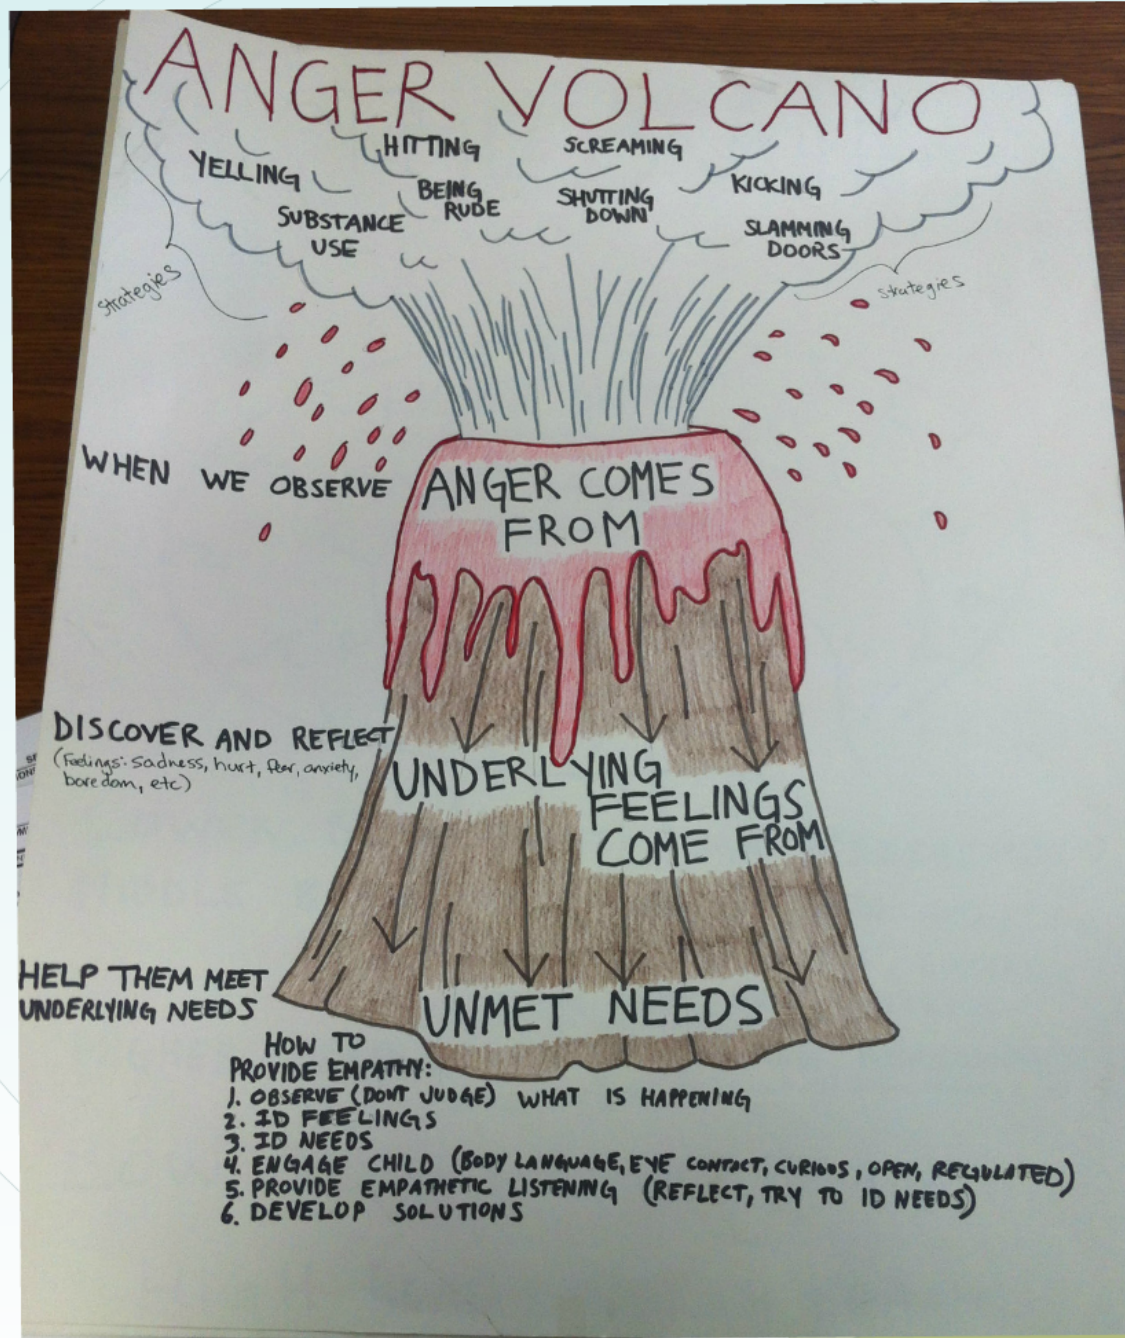 ANGER VOLCANO
HITTING
SCREAMING
YELLING
BEING
RUDE
SHUTTING
DOWN
KICKING
SUBSTANCE
USE
SLAMMING
DOORS
strategies
strategies
WHEN WE OBSERVE
ANGER COMES
FROM
DISCOVER AND REFLECT
(Feelings: sadness, hurt, fear, anxiety,
boredom, etc)
UNDERLYING
FEELINGS
COME FROM
HELP THEM MEET
UNDERLYING NEEDS
UNMET NEEDS
HOW TO
PROVIDE EMPATHY:
1. OBSERVE (DONT JUDGE) WHAT IS HAPPENING
2. ID FEELINGS
3. ID NEEDS
4. ENGAGE CHILD (BODY LANGUAGE, EYE CONTACT, CURIOUS, OPEN, REGULATED)
5. PROVIDE EMPATHETIC LISTENING (REFLECT, TRY TO ID NEEDS)
6. DEVELOP SOLUTIONS